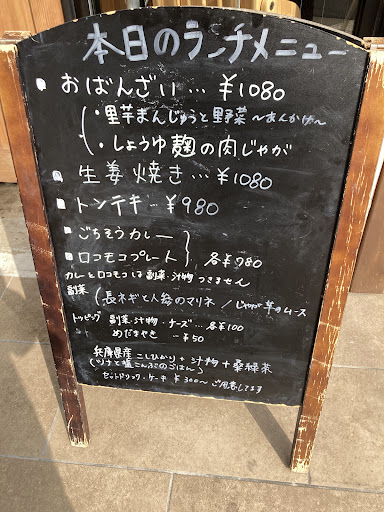 本日のランチメニュー
おばんざい…¥1080
・里芋まんじゅうと野菜~あんかけ~
・しょうゆ麹の肉じゃが
生姜焼き…¥1080
トンテキー¥980
ごちそうカレー
ロコモコプレート 各¥980
カレーとロコモコは副菜・汁物つきません
副菜(長ネギと人参のマリネ/じゃが芋のムース
トッピング 副菜・汁物・チーズ…各¥100
めだまやき ー¥50
兵庫県産 こしひかり+汁物+桑緑茶
(ツナと塩こんぶのごはん)
セットドリンク・ケーキ ¥300~ ご用意してます